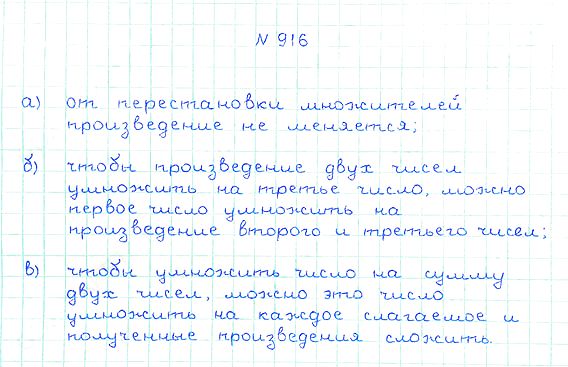 N 916
а) от перестановки множителей
произведение не меняется;
б) чтобы произведение двух чисел
умножить на третье число, можно
первое число умножить на
произведение второго и третьего чисел;
в) чтобы умножить число на сумму
двух чисел, можно это число
умножить на каждое слагаемое и
полученные произведения сложить.